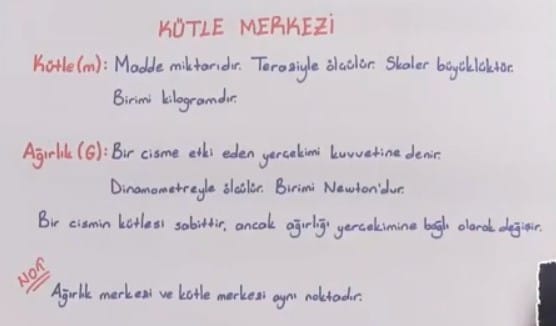 KÜTLE MERKEZİ
Kütle (m): Madde miktarıdır. Teraziyle ölçülür. Skaler büyüklüktür.
Birimi kilogramdır.
Ağırlık (G): Bir cisme etki eden yerçekimi kuvvetine denir.
Dinamometreyle ölçülür. Birimi Newton'dur.
Bir cismin kütlesi sabittir, ancak ağırlığı yerçekimine bağlı olarak değişir.
NOT
Ağırlık merkezi ve kütle merkezi aynı noktadır.